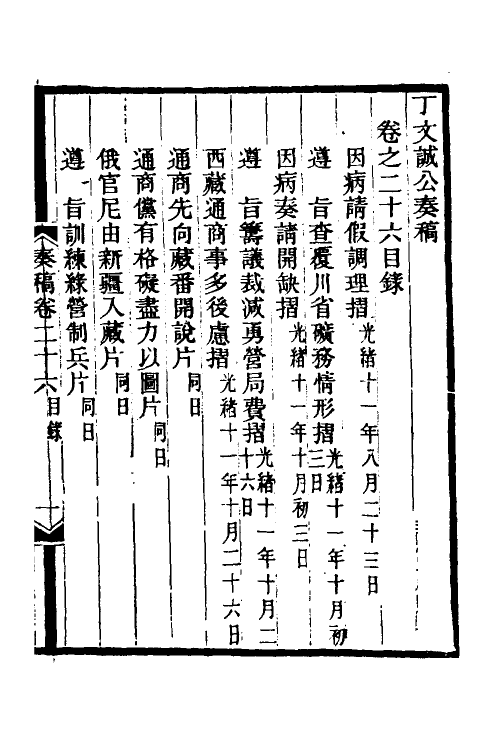 丁文誠公奏稿
卷之二十六目錄
因病請假調理摺光緒十一年八月二十三日
遵　旨查覆川省礦務情形摺光緒十一年十月初三日
因病奏請開缺摺光緒十一年十月初三日
遵　旨籌議裁減勇營局費摺光緒十一年十月二十六日
西藏通商事多後慮摺光緒十一年十月二十六日
通商先向藏番開說片同日
通商儻有格礙盡力以圖片同日
俄官尼由新疆入藏片同日
遵　旨訓練綠營制兵片同日
奏稿卷二十六目錄　一